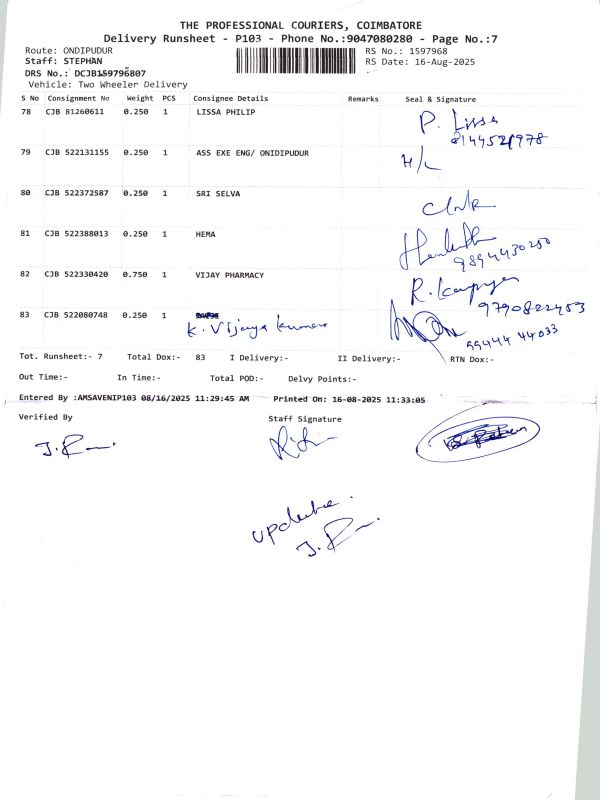 THE PROFESSIONAL COURIERS, COIMBATORE
Delivery Runsheet - P103 - Phone No.:9047080280 - Page No.:7
Route: ONDIPUDUR RS No.: 1597968
Staff: STEPHAN RS Date: 16-Aug-2025
DRS No.: DCJB159796807
Vehicle: Two Wheeler Delivery
S No Consignment No Weight PCS Consignee Details Remarks Seal & Signature
78 CJB 81260611 0.250 1 LISSA PHILIP P. Lissa
8144521978
79 CJB 522131155 0.250 1 ASS EXE ENG/ ONDIPUDUR H/L
80 CJB 522372587 0.250 1 SRI SELVA
81 CJB 522388013 0.250 1 HEMA
9894430250
82 CJB 522330420 0.750 1 VIJAY PHARMACY R.
9790822453
83 CJB 522080748 0.250 1
K. Vijaya Kumar 99444 44033
Tot. Runsheet:- 7 Total Dox:- 83 I Delivery:- II Delivery:- RTN Dox:-
Out Time:- In Time:- Total POD:- Delvy Points:-
Entered By :AMSAVENIP103 08/16/2025 11:29:45 AM Printed On: 16-08-2025 11:33:05
Verified By Staff Signature